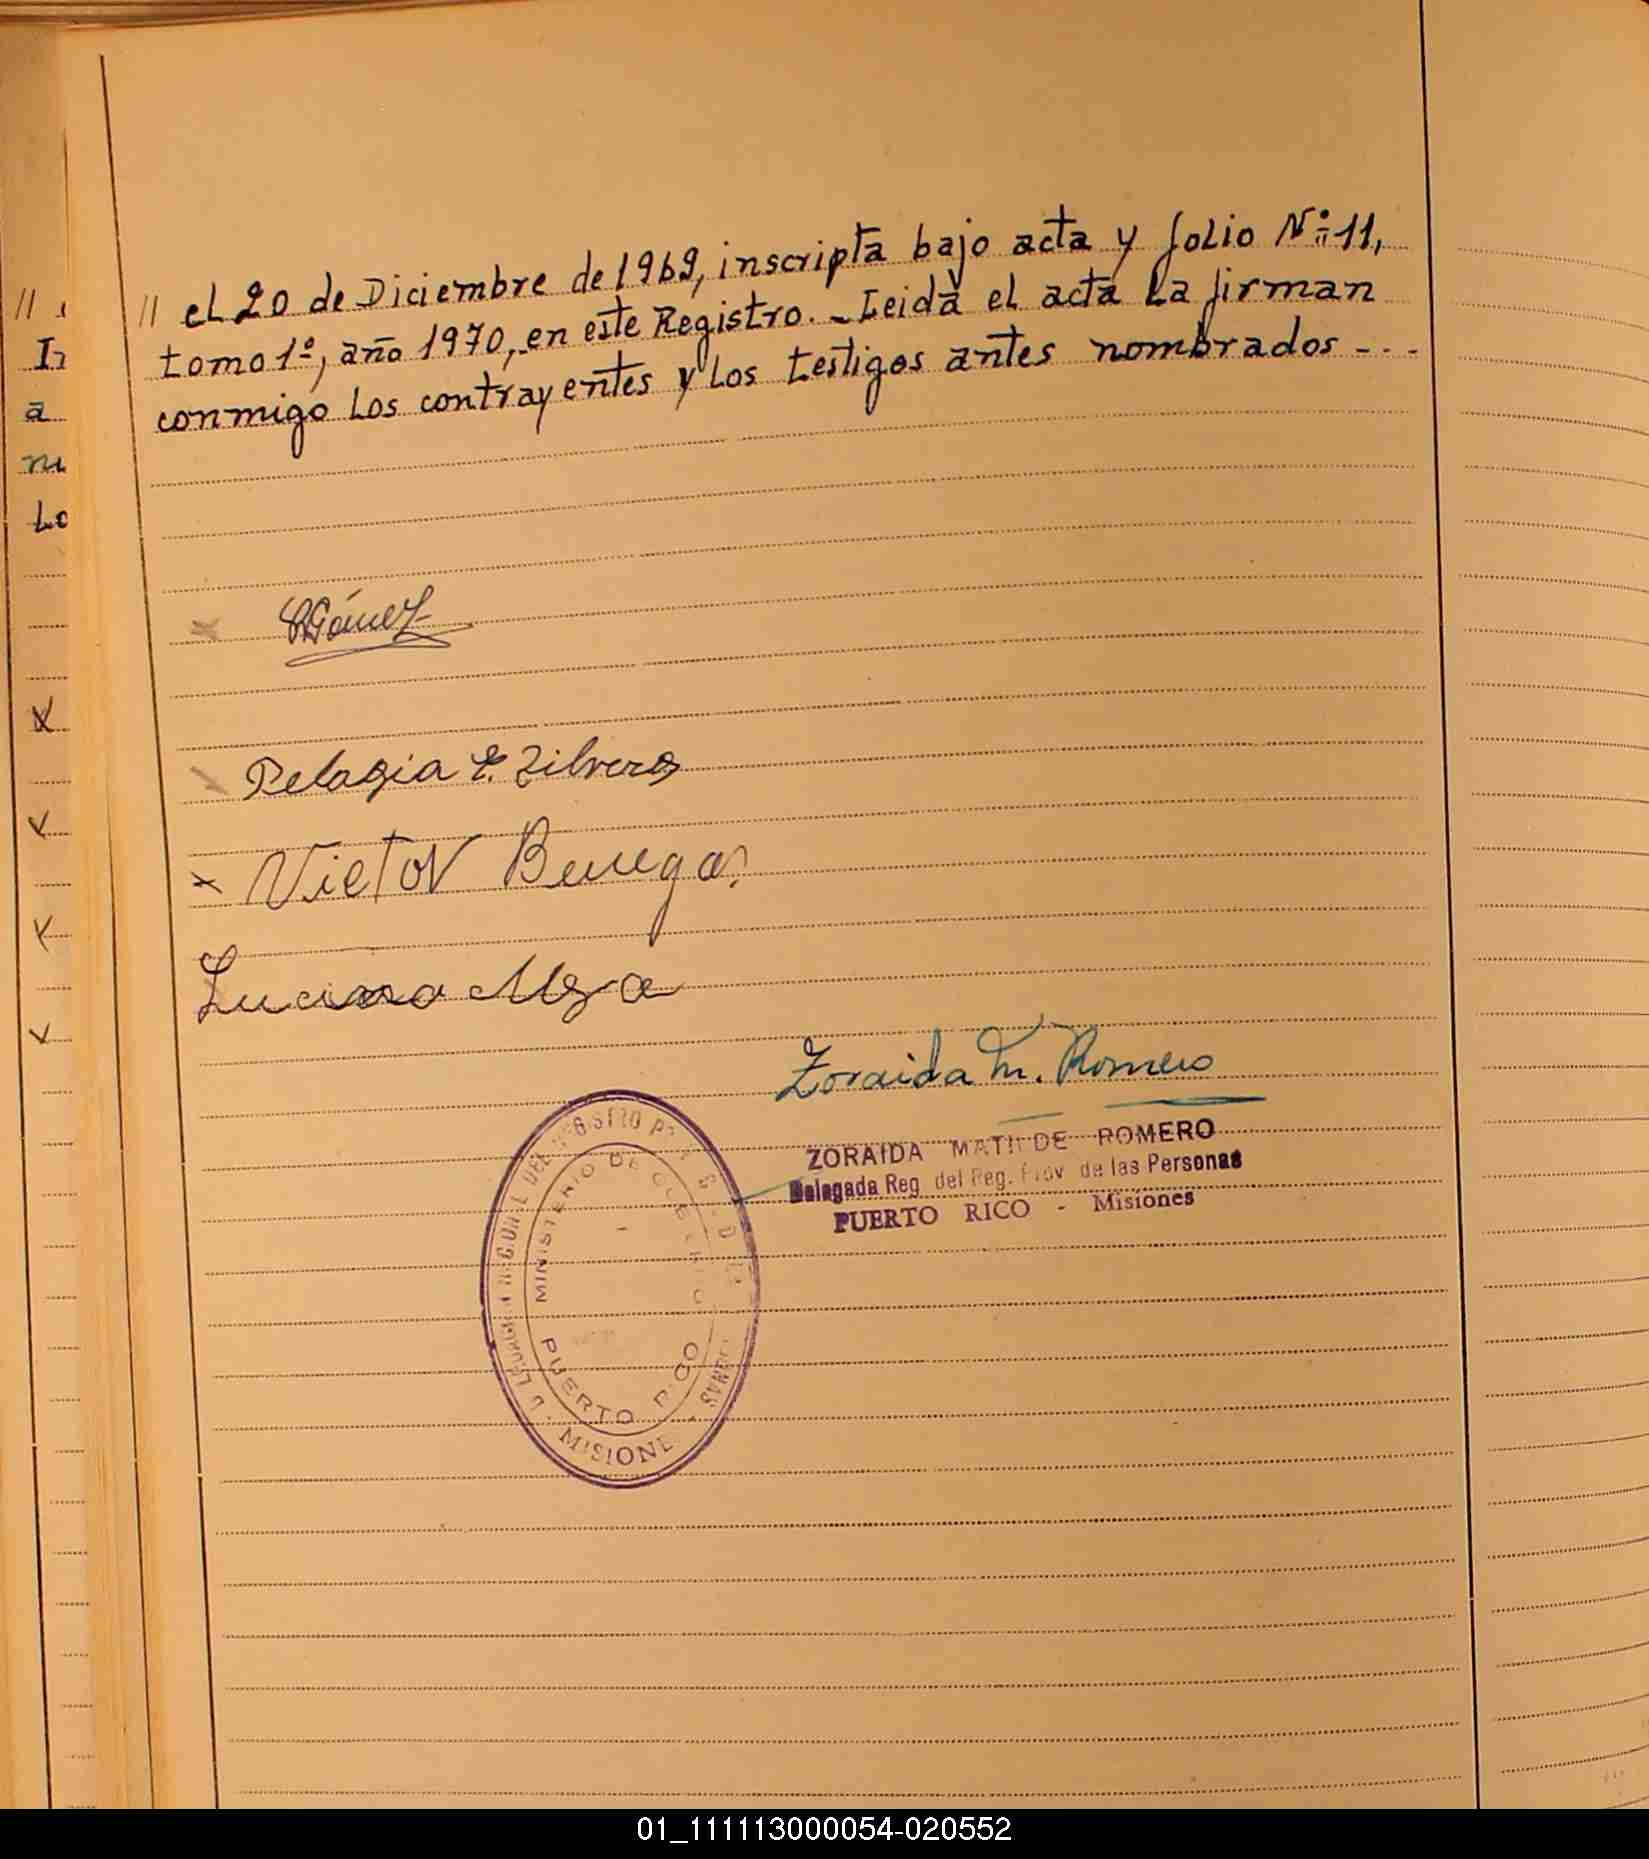 // el 20 de Diciembre de 1969, inscripta bajo acta y folio Nº 11,
tomo 1º, año 1970, en este Registro. - Leida el acta La firman
conmigo Los contrayentes y Los testigos antes nombrados - - -
Gómez
Pelagia E. Silvero
Victor Benegas
Luciano
Zoraida M. Romero
ZORAIDA MATILDE ROMERO
Delegada Reg. del Reg. Prov. de las Personas
PUERTO RICO - Misiones
MINISTERIO DE GOBIERNO
PUERTO RICO
MISIONES
//
a
Lo
01_111113000054-020552